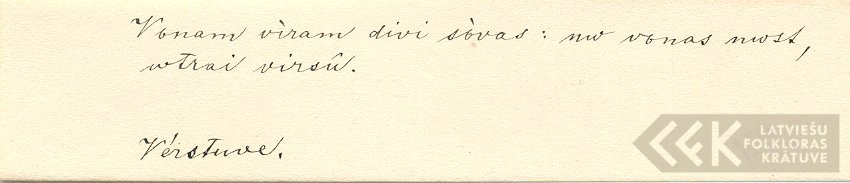 Vonam vìram divi sòvas: nω vonas nωst,
ωtrai virsû.
Vérstuve.
LATVIEŠU
FOLKLORAS
KRĀTUVE